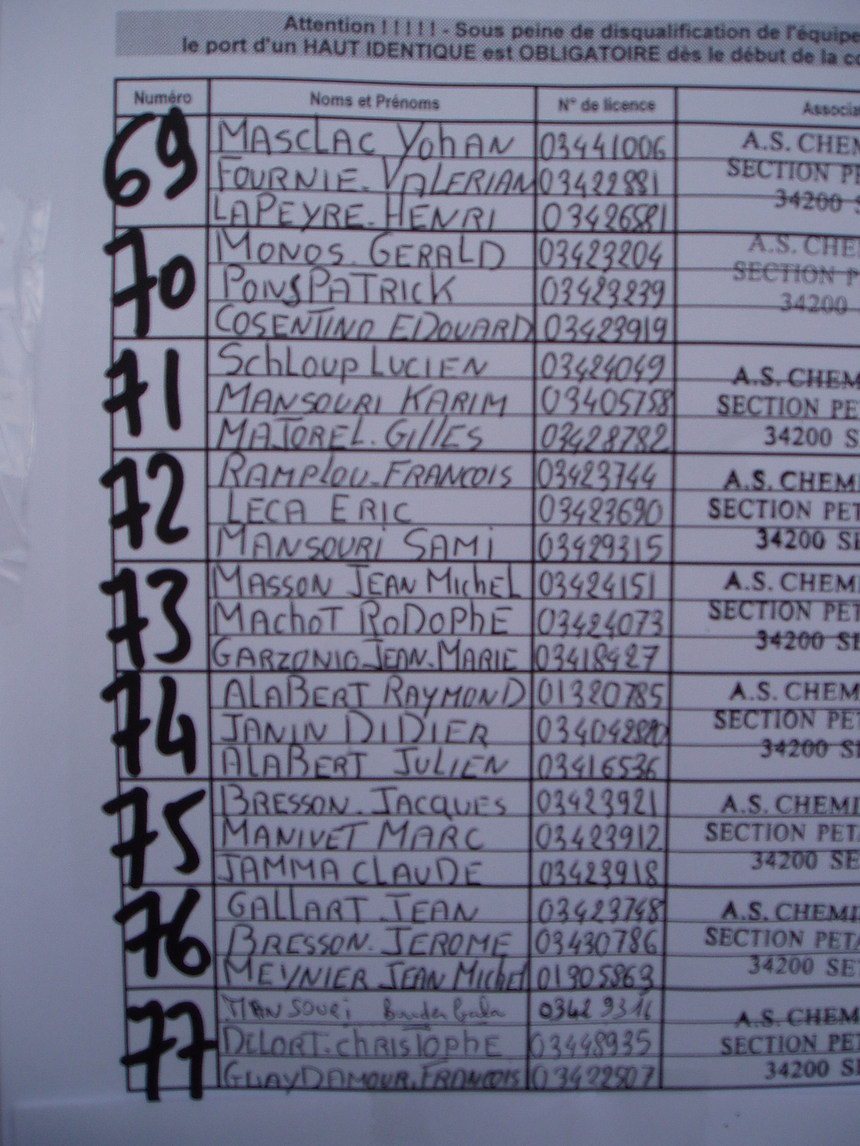 Attention ! ! ! ! ! - Sous peine de disqualification de l'équipe
le port d'un HAUT IDENTIQUE est OBLIGATOIRE dès le début de la
Numéro Noms et Prénoms N° de licence
69 MASCLAC YOHAN 03441006 A.S.
FOURNIE. VALERIAN 03422881 SECTION
LAPEYRE. HENRI 03426581 34200
70 MONOS. GERALD 03423204 A.S.
PONS PATRICK 03423239 SECTION
COSENTINO EDOUARD 03423919 34200
71 SCHLOUP LUCIEN 03424049 A.S.
MANSOURI KARIM 03405758 SECTION
MAJOREL. GILLES 03428782 34200
72 RAMPLOU-FRANCOIS 03423744 A.S.
LECA ERIC 03423690 SECTION
MANSOURI SAMI 03429315 34200
73 MASSON JEAN MICHEL 03424151 A.S.
MACHOT RODOPHE 03424073 SECTION
GARZONIO JEAN-MARIE 03418427 34200
74 ALABERT RAYMOND 01320785 A.S.
JANIN DIDIER SECTION
ALABERT JULIEN 03416536 34200
75 BRESSON. JACQUES 03423921 A.S.
MANIVET MARC 03423912 SECTION
JAMMA CLAUDE 03423918 34200
76 GALLART JEAN 03423748 A.S.
BRESSON. JEROME 03430786 SECTION
MEYNIER JEAN MICHEL 01905863 34200
77 MANSOURI 03429316 A.S.
DELORT. CHRISTOPHE 03448935 SECTION
GUAYDAMOUR. FRANCOIS 03422507 34200